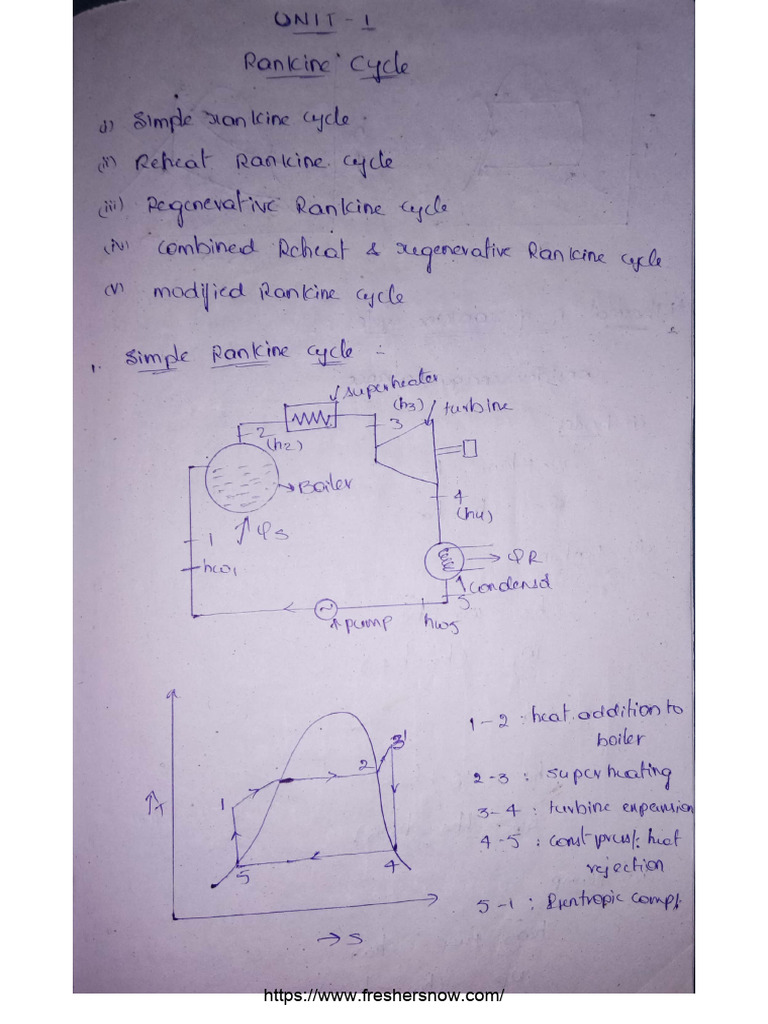 UNIT-1
Rankine Cycle
(i) Simple rankine cycle.
(ii) Reheat Rankine cycle
(iii) Regenerative Rankine cycle
(iv) combined Reheat & regenerative Rankine cycle
(v) modified Rankine cycle
1. Simple Rankine cycle :-
superheater
(h3) turbine
3
2
(h2)
Boiler
4
(h4)
1
QS
QR
hw1
condensd
5
pump hw5
T
1
2
3'
5
4
→S
1-2 : heat addition to
boiler
2-3 : superheating
3-4 : turbine expansion
4-5 : const press. heat
rejection
5-1 : Isentropic comp.
https://www.freshersnow.com/